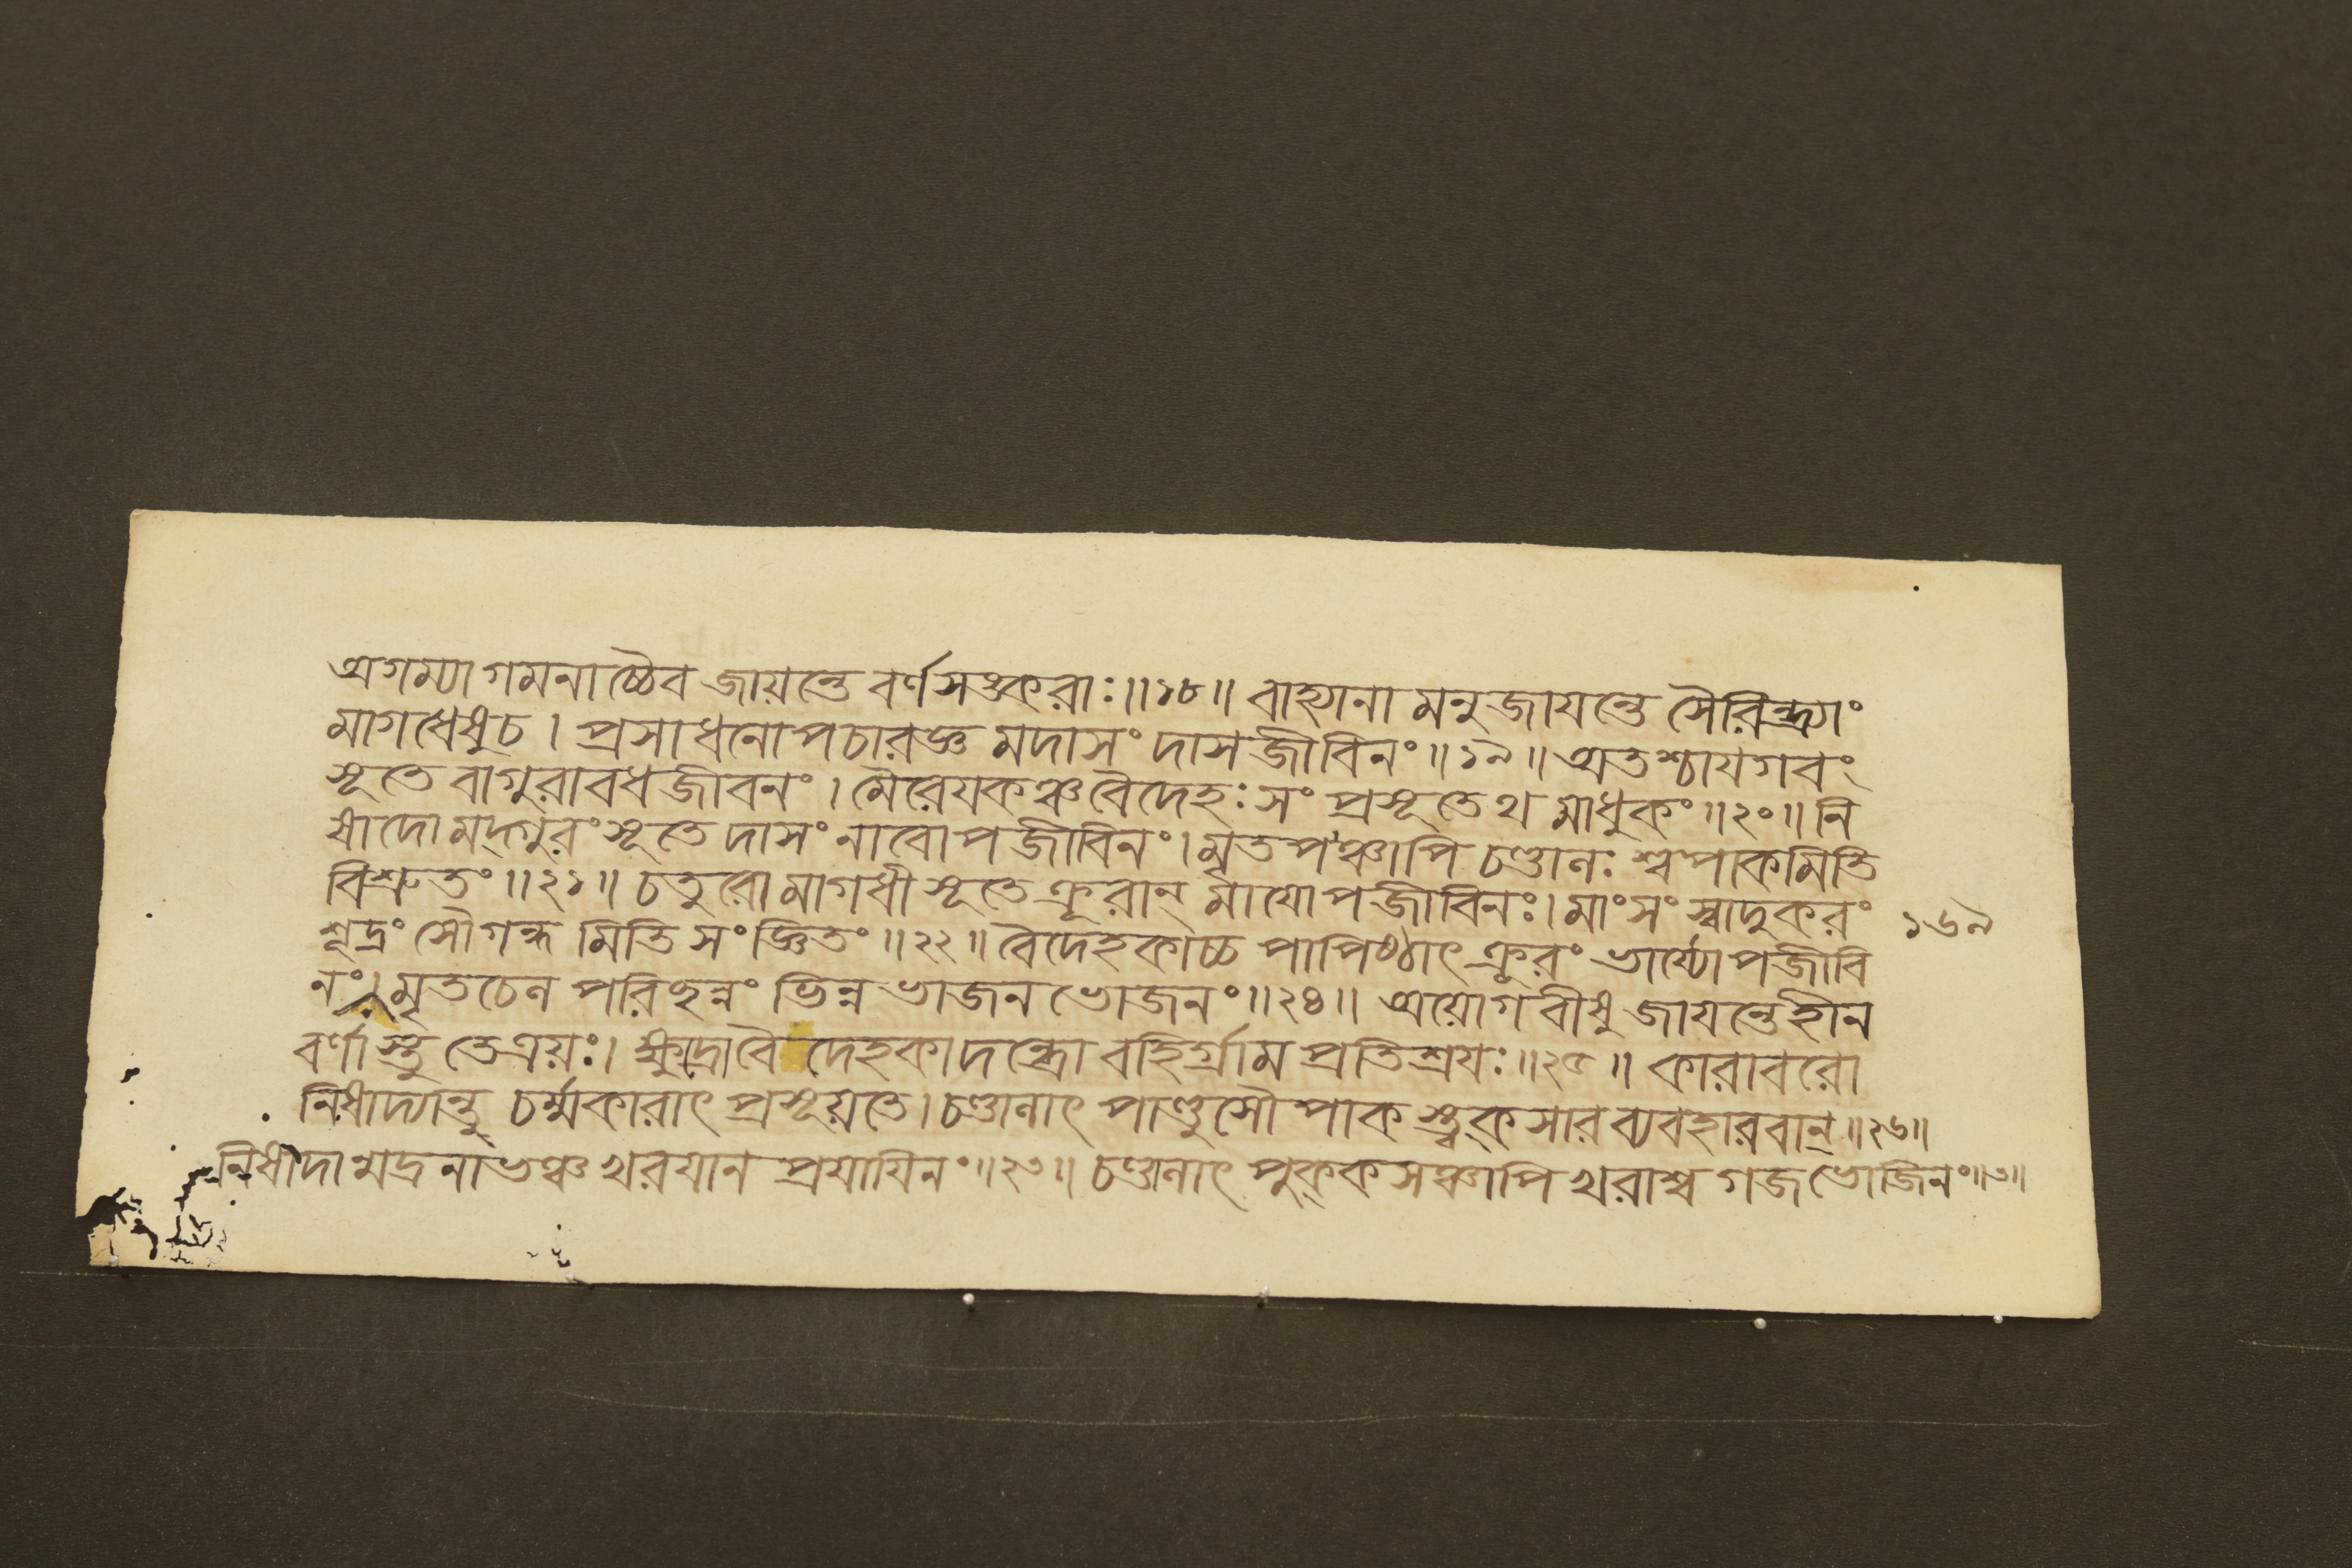 অগম্যাগমনাচ্চৈব জায়ন্তে বর্ণসঙ্করাঃ॥১৮॥ বাহ্যানামনুজাযন্তে সৈরিন্ধ্র্যাং
মাগধেষুচ। প্রসাধনোপচারজ্ঞমদাসং দাসজীবিনং॥১৯॥ অতশ্চাযগবং
সূতে বাগুরাবধজীবনং। মৈরেযকঞ্চবৈদেহঃ সংপ্রসূতেথ মাধুকং॥২০॥ নি
ষাদোমদ্গুরং সূতে দাসং নাবোপজীবিনং। মৃতপঞ্চাপি চণ্ডালঃ শ্বপাকমিতি
বিশ্রুতং॥২১॥ চতুরোমাগধী সূতে ক্রূরান্ মাযোপজীবিনঃ। মাংসং স্বাদুকরং
শূদ্রং সৌগন্ধমিতি সংজ্ঞিতং॥২২॥ বৈদেহকাচ্চ পাপিষ্ঠাৎ ক্রূরং ভার্য্যোপজীবি
নং। মৃতচেল পরিছন্নং ভিন্নভাজনভোজনং॥২৪॥ অয়োগবীষু জাযন্তেহীন
বর্ণাস্তু তেত্রয়ঃ। ক্ষুদ্রোবৈদেহকাদন্ধ্রো বহির্গ্রামপ্রতিশ্রযঃ॥২৫॥ কারাবরো
নিষাদ্যান্তু চর্ম্মকারাৎ প্রসূয়তে। চণ্ডালাৎ পাণ্ডুসৌপাকস্ত্বক্সারব্যবহারবান্॥২৬॥
নিষাদামদ্রনাভঞ্চ খরযানপ্রযাযিনং॥২৩॥ চণ্ডালাৎ পুক্কসঞ্চাপি খরাশ্বগজভোজিনং॥৩॥
১৬৯